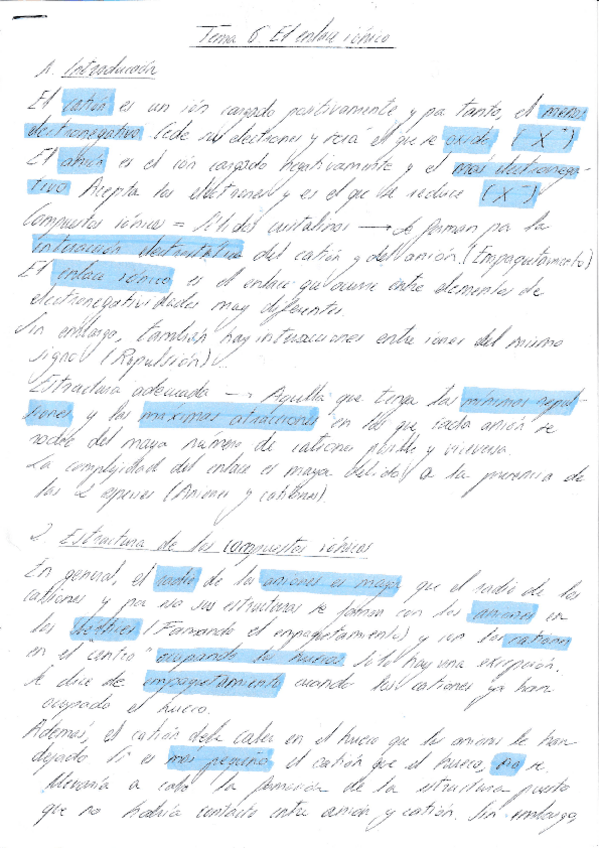 Tema 6. El enlace iónico
1. Introducción
El catión es un ión cargado positivamente y por tanto, el menos
electronegativo. Cede sus electrones y será el que se oxida (X⁺)
El anión es el ión cargado negativamente y el más electronega-
tivo. Acepta los electrones y es el que se reduce (X⁻)
Compuestos iónicos = Sólidos cristalinos → Se forman por la
interacción electrostática del catión y del anión. (Empaquetamiento)
El enlace iónico es el enlace que ocurre entre elementos de
electronegatividades muy diferentes.
Sin embargo, también hay interacciones entre iones del mismo
signo (Repulsión).
Estructura adecuada → Aquella que tenga las mínimas repul-
siones y las máximas atracciones en las que cada anión se
rodee del mayor número de cationes posible y viceversa.
La complejidad del enlace es mayor debido a la presencia de
las 2 especies (Aniones y cationes)
2. Estructura de los compuestos iónicos
En general, el radio de los aniones es mayor que el radio de los
cationes y por eso sus estructuras se forman con los aniones en
los (Formando el empaquetamiento) y con los cationes
en el centro ocupando los huecos. Sólo hay una excepción.
Se dice de empaquetamiento cuando los cationes ya han
ocupado el hueco.
Además, el catión debe caber en el hueco que los aniones le han
dejado. Si es más pequeño el catión que el hueco, no se
llevaría a cabo la formación de la estructura puesto
que no habría contacto entre anión y catión. Sin embargo,